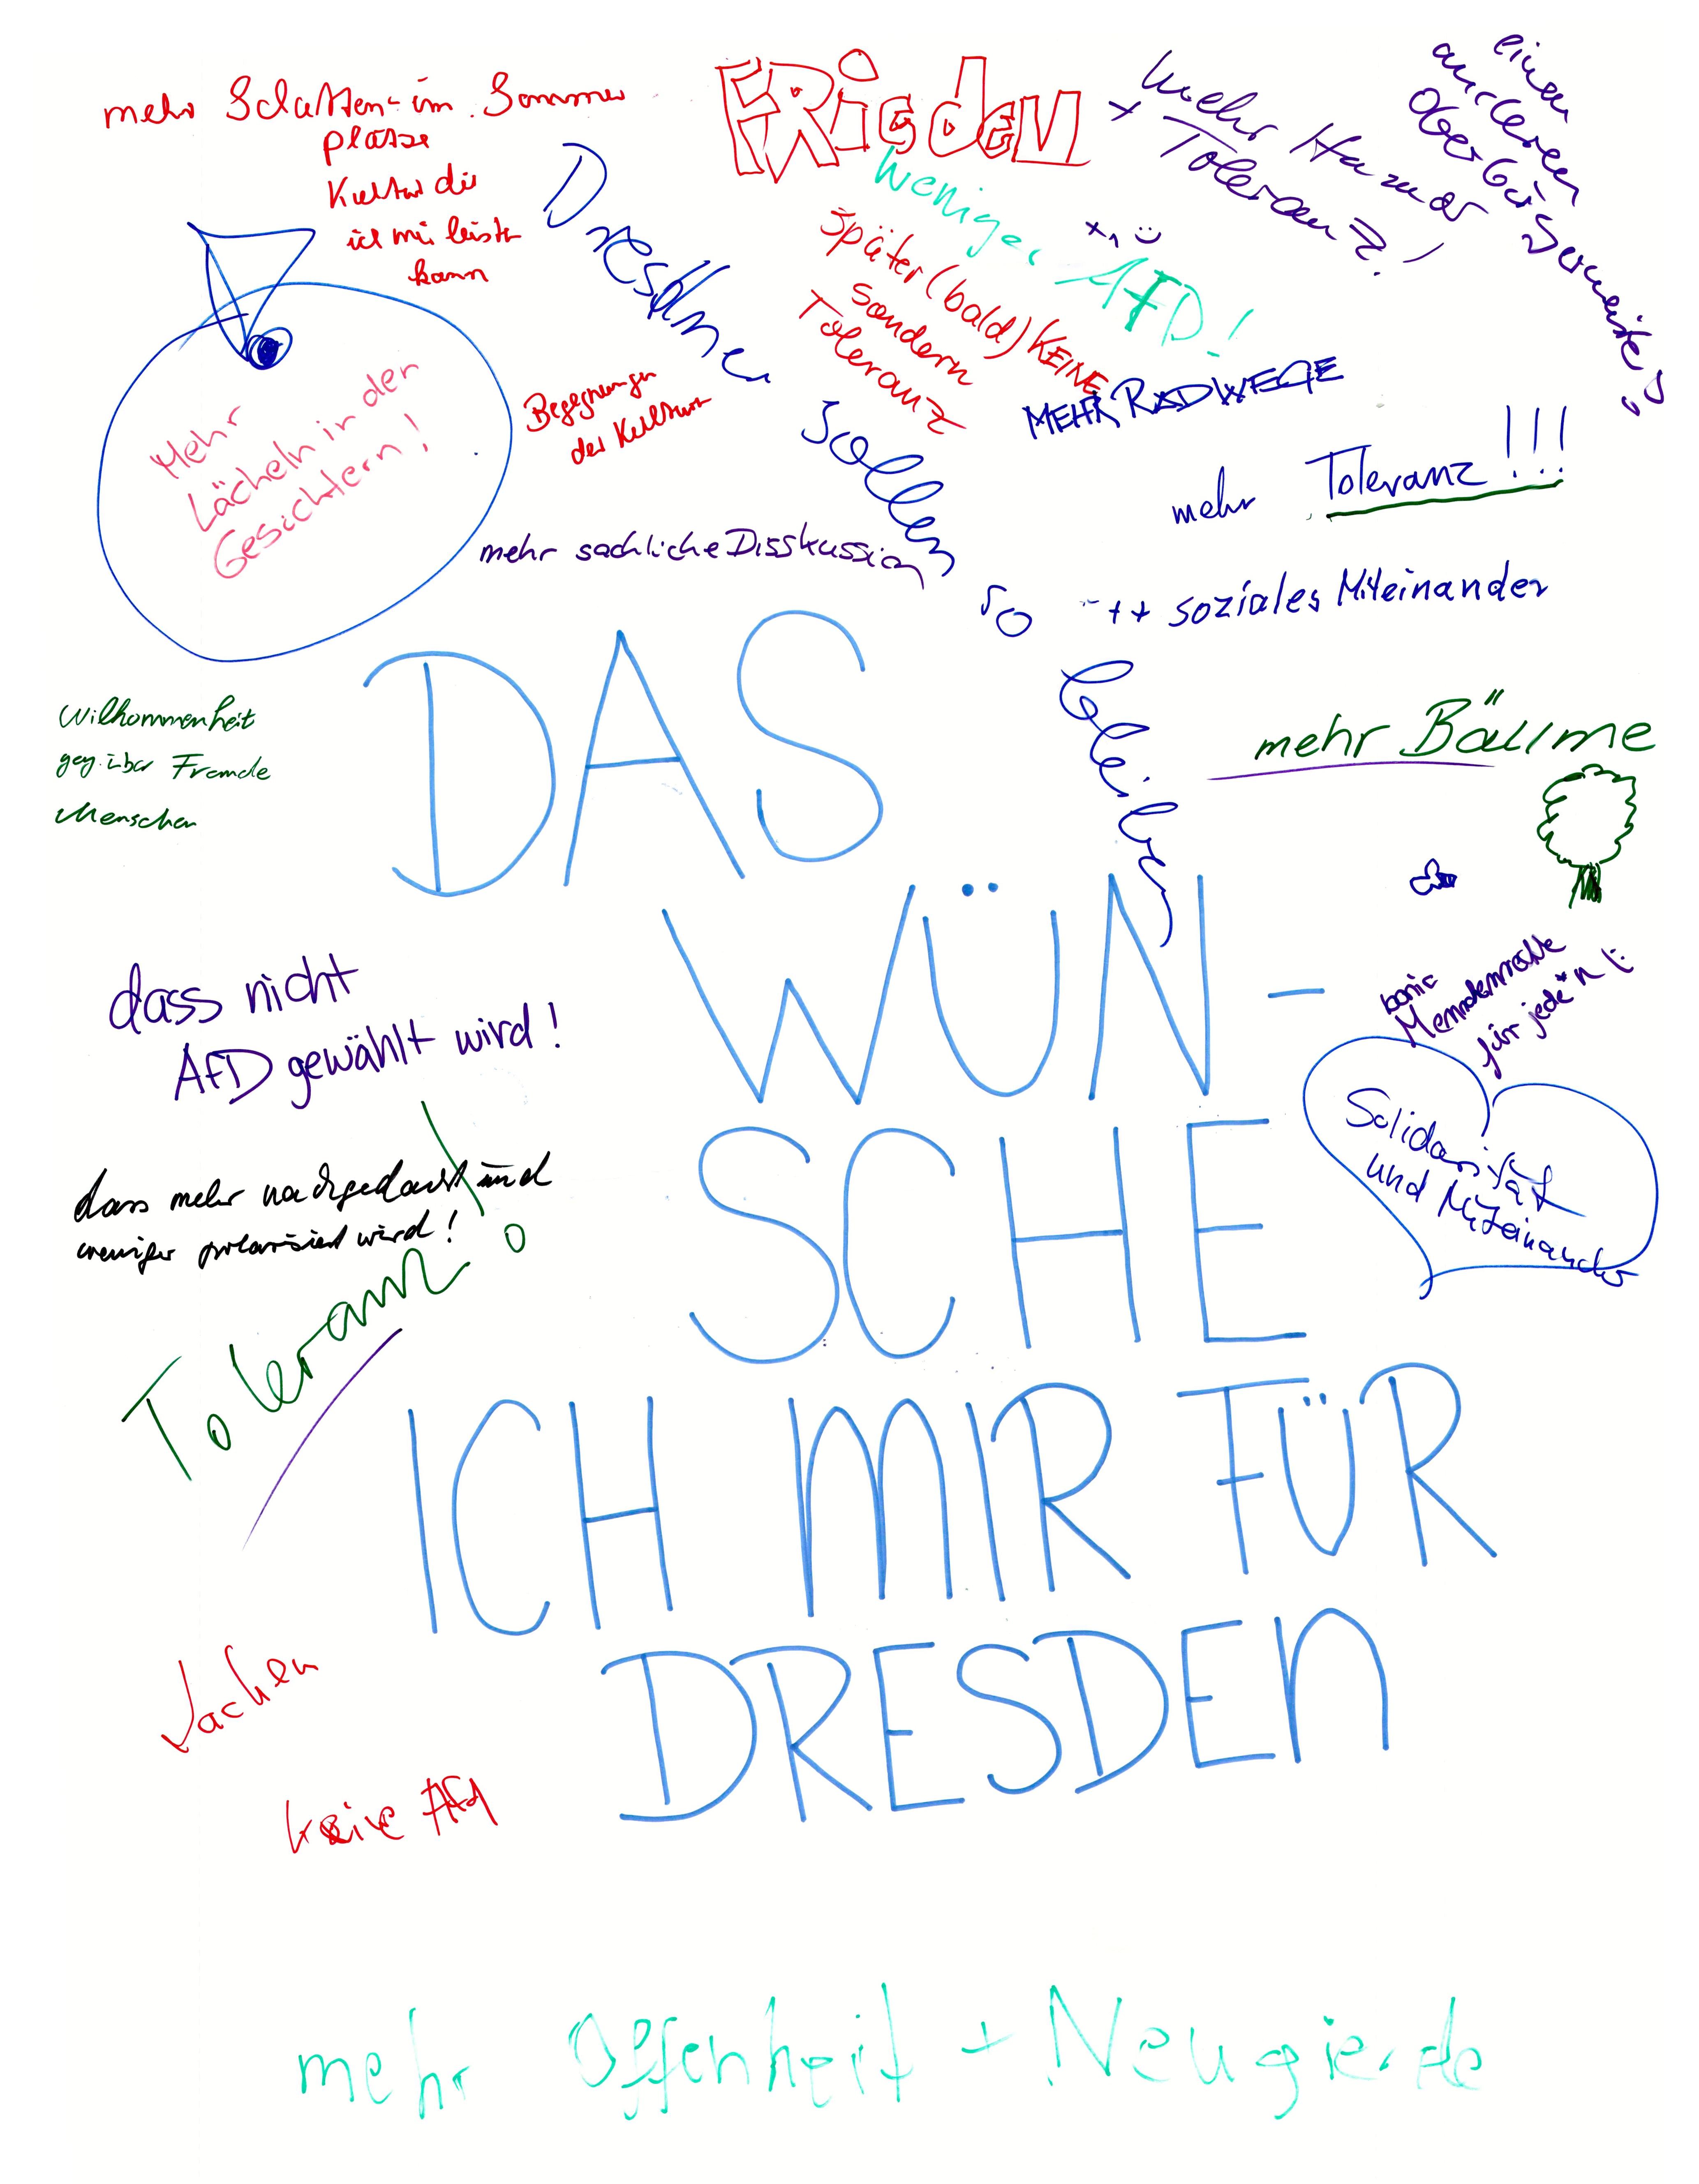 mehr Schatten- im Sommer
plätze
Kultur die
ich mir leisten
kann
FRieden
weniger AFD!
x1
später (bald) KEINE
sondern
Toleranz
mehr Humor
+ Toleranz!
einen
anderen
Oberbürgermeister!
Dresdner
sollen
so
bleiben
Mehr
Lächeln in der
Gesichtern!
Begegnungen
der Kulturen
MEHR RADWEGE
mehr Toleranz!!!
mehr sachliche Disskussion
++ soziales Miteinander
DAS
WÜN-
SCHE
ICH MIR FÜR
DRESDEN
Willkommenheit
geg.über Fremde
Menschen
mehr Bäume
dass nicht
AfD gewählt wird!
dass mehr nachgedacht und
weniger polarisiert wird!
Toleranz!
für jede*n (:
Solidarität
und Miteinander
Lachen
keine AfD
mehr Offenheit + Neugierde